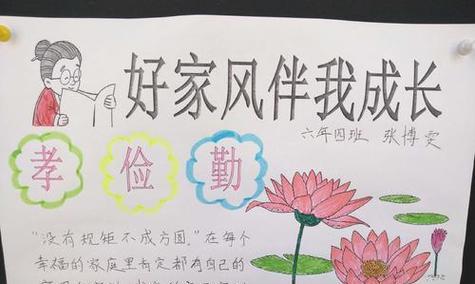 好家风伴我成长
六年四班 张博雯
孝 俭 勤
“没有规矩不成方圆。”在每个
幸福的家庭里肯定都有自己的